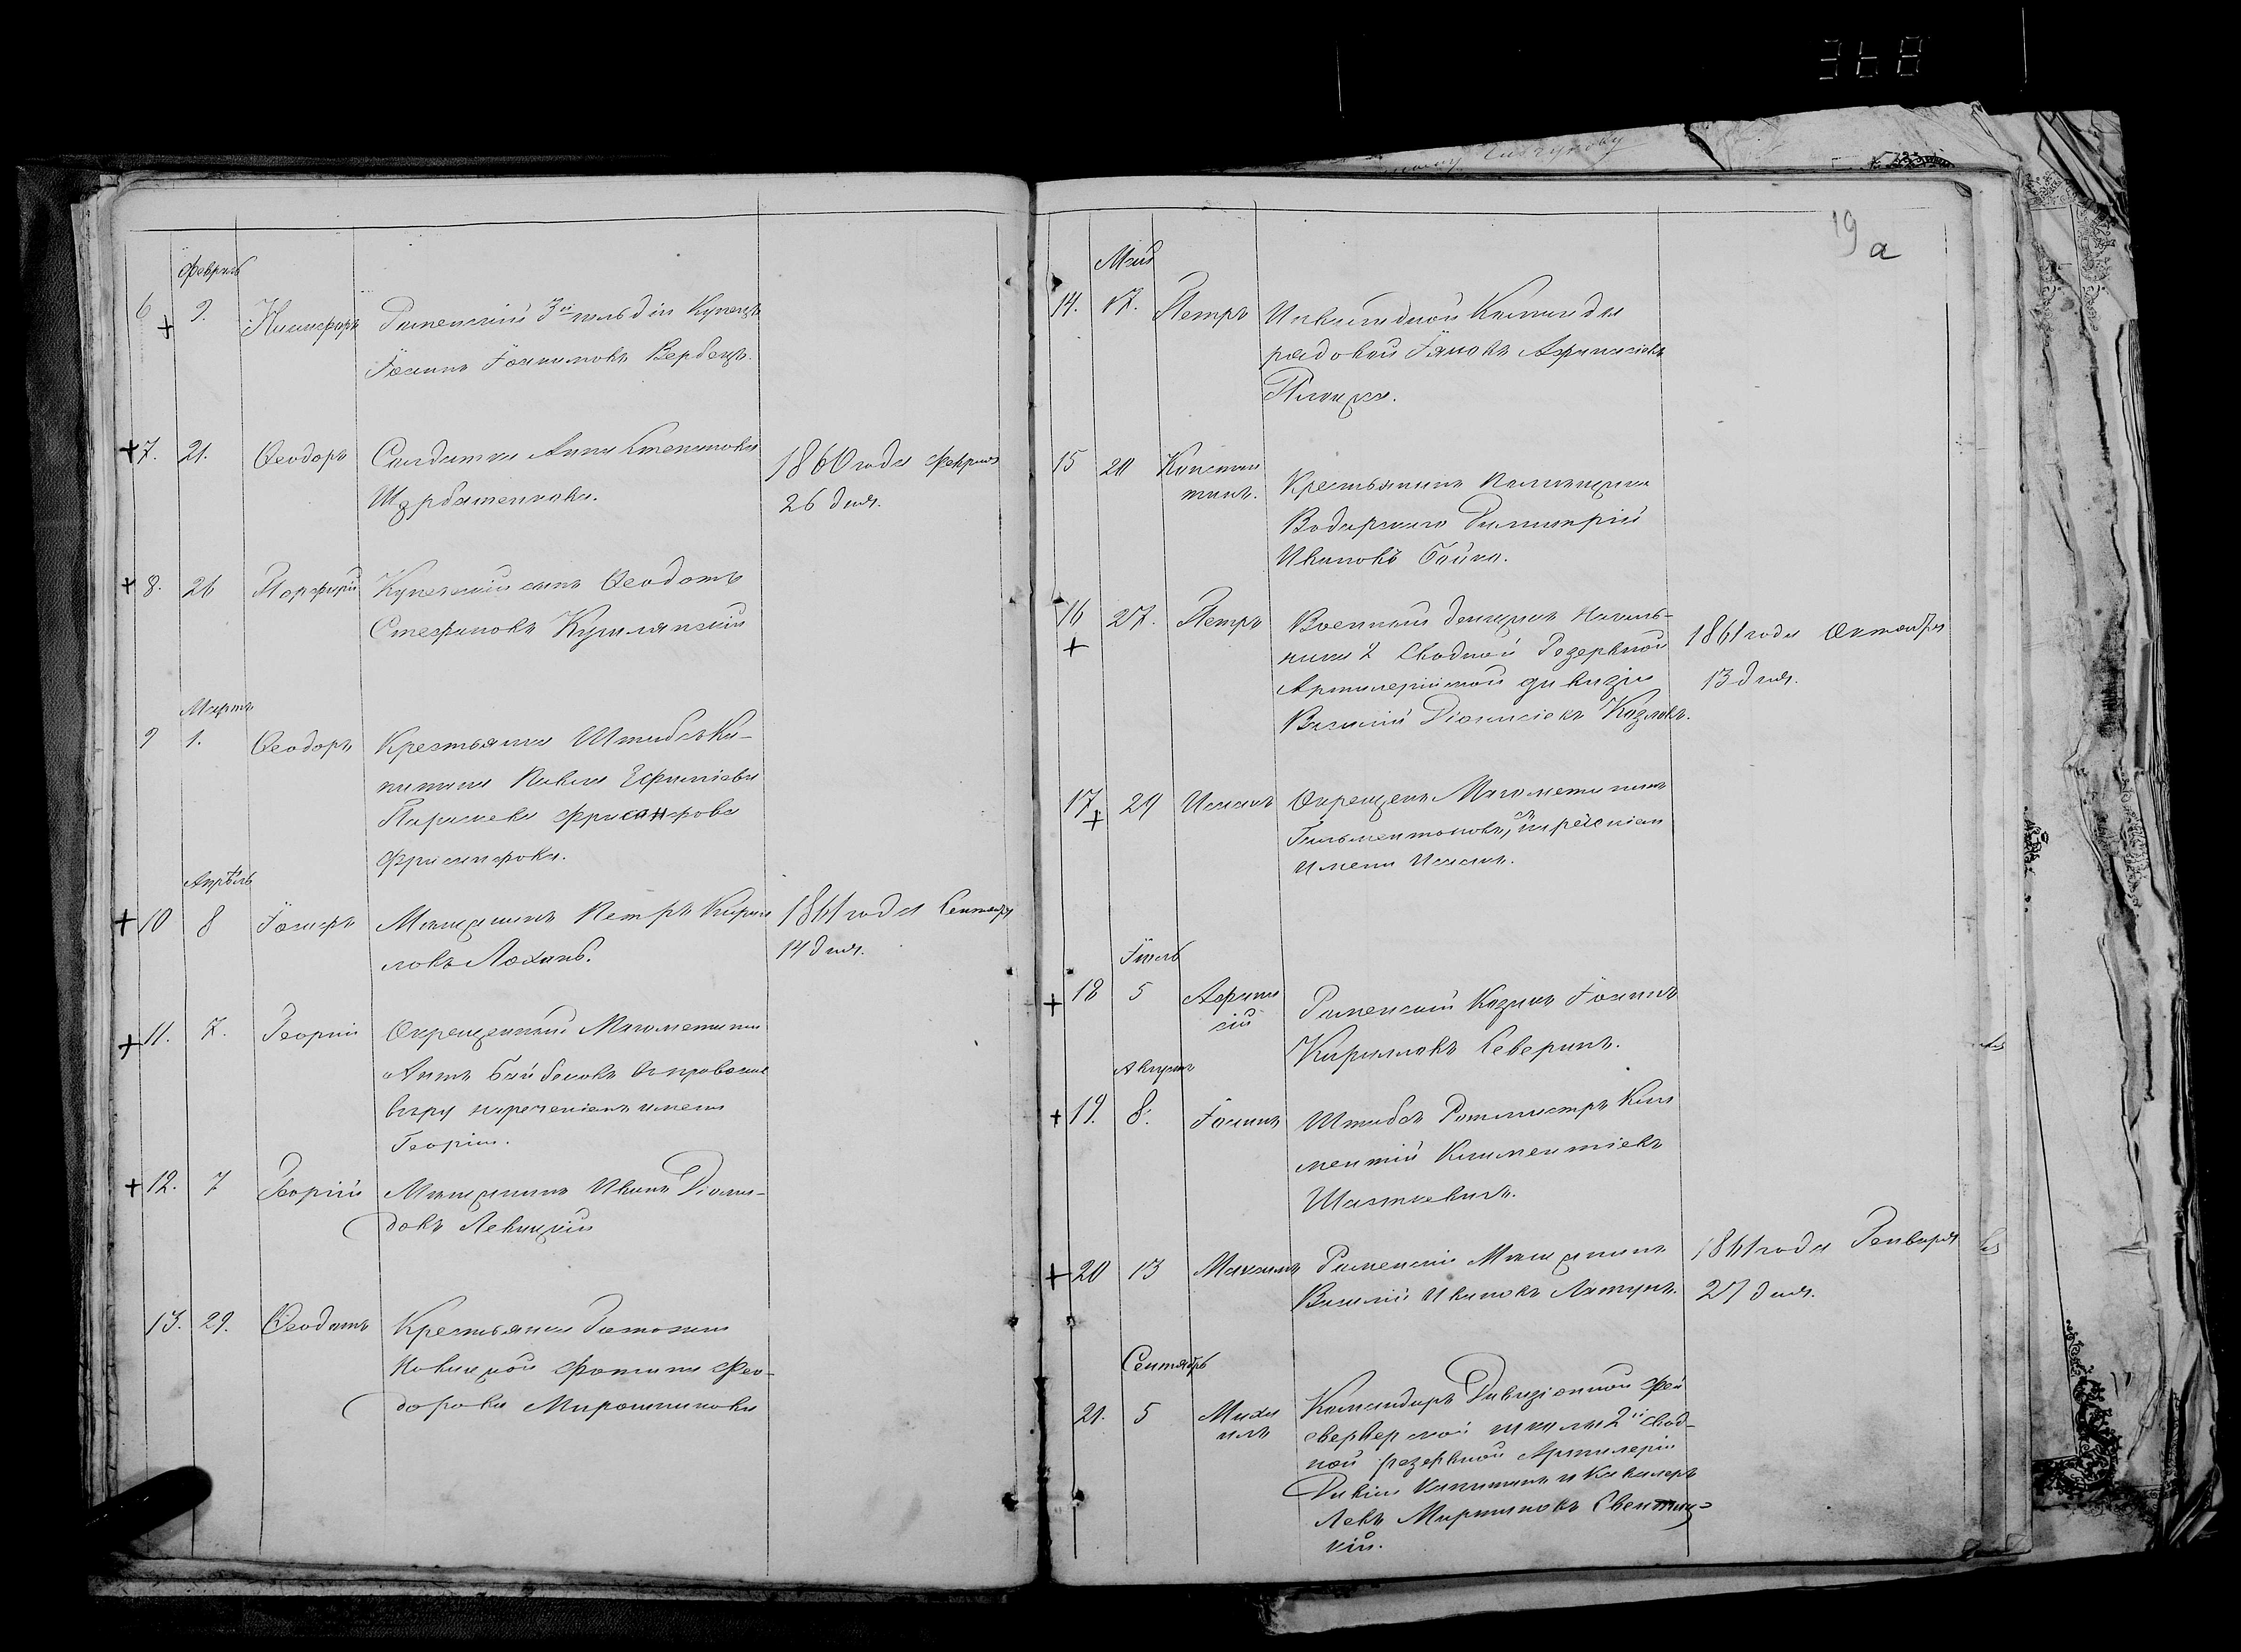 368
19 а
Февраль
6 9. Никифоръ Роменскій 3й гильдіи Купецъ
Іоаннъ Іоакимовъ Вербецъ.
7. 21. Ѳеодоръ Салдатка Анна Степанова
Щербатенкова.
1860 года Февраля
26 дня.
8. 26 Порфирій Купеческій сынъ Ѳеодотъ
Стефановъ Курилянскій
Мартъ
9 1. Ѳеодоръ Крестьянка Штабсъ Ка-
питана Павла Ефимьева
Фрисанфрова
Апрѣль
10 8 Іосифъ Мѣщанинъ Петръ Кирил
ловъ Лохань.
1861 года Сентября
14 дня.
11. 7. Георгій Окрещенный Магометанин
Байбековъ
вѣру нареченіемъ имени
Георгія.
12. 7 Георгій Мѣщанинъ Иванъ Діоми-
довъ Левицкій
13. 29. Ѳеодотъ Крестьянка
Новицкой Фотина Фео-
дорова Мирошникова
Май
14. 17. Петръ Инвалидной Команды
рядовой Іяковъ Афанасіевъ
15 20 Констан
тинъ.
Крестьянинъ Помѣщика
Водарскаго Димитрій
Ивановъ Бойко.
16 27. Петръ Военный денщикъ Началь-
ника 2 Сводной Резервной
Артилерійской дивизіи
Василій Діонисіевъ Козловъ.
1861 года Октября
13 дня.
17 29 Исаакъ Окрещенъ Магометанинъ
съ нареченіем
имени Исаакъ.
Іюль
18 5 Афана
сій
Роменскій Козакъ Іоаннъ
Кириловъ Северинъ.
Августъ
19. 8. Іоаннъ Штабсъ Ротмистръ Кли
ментій Климентіевъ
Шасткевичъ.
20 13 Максимъ Роменскій Мѣщанинъ
Василій Ивановъ Латунъ.
1861 года Генваря
27 дня.
Сентябрь
21. 5 Миха
илъ
Командиръ Дивизіонной фей
ерверкерской школы 2й свод-
ной резервной Артилеріи
Дивизіи Капитанъ и Кавалеръ
Левъ Мартиновъ Свентиц-
кій.